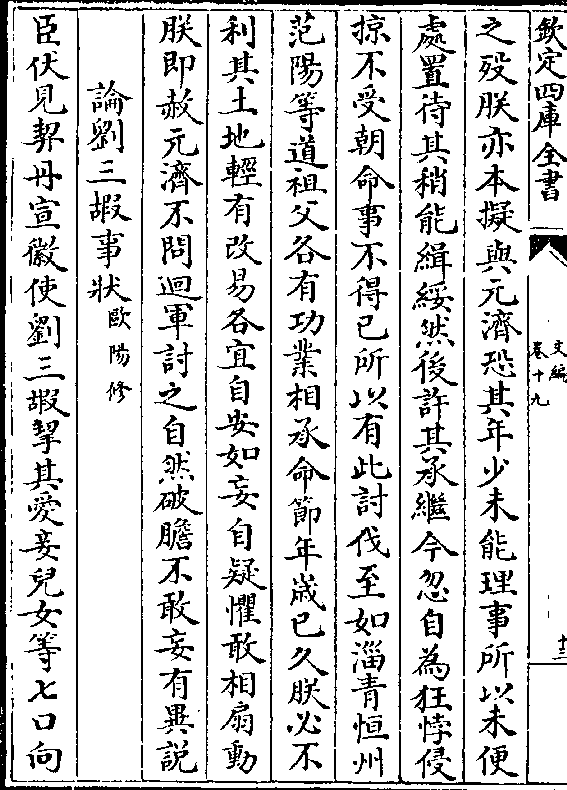 欽定四庫全書
文編
卷十九
十三
之歿朕亦本擬與元濟恐其年少未能理事所以未便
處置待其稍能緝綏然後許其承繼今忽自為狂悖侵
掠不受朝命事不得已所以有此討伐至如淄青恒州
范陽等道祖父各有功業相承命節年嵗已久朕必不
利其土地輕有改易各宜自安如妄自疑懼敢相扇動
朕即赦元濟不問迴軍討之自然破膽不敢妄有異説
論劉三嘏事狀歐陽修
臣伏見契丹宣徽使劉三嘏挈其愛妾兒女等七口向